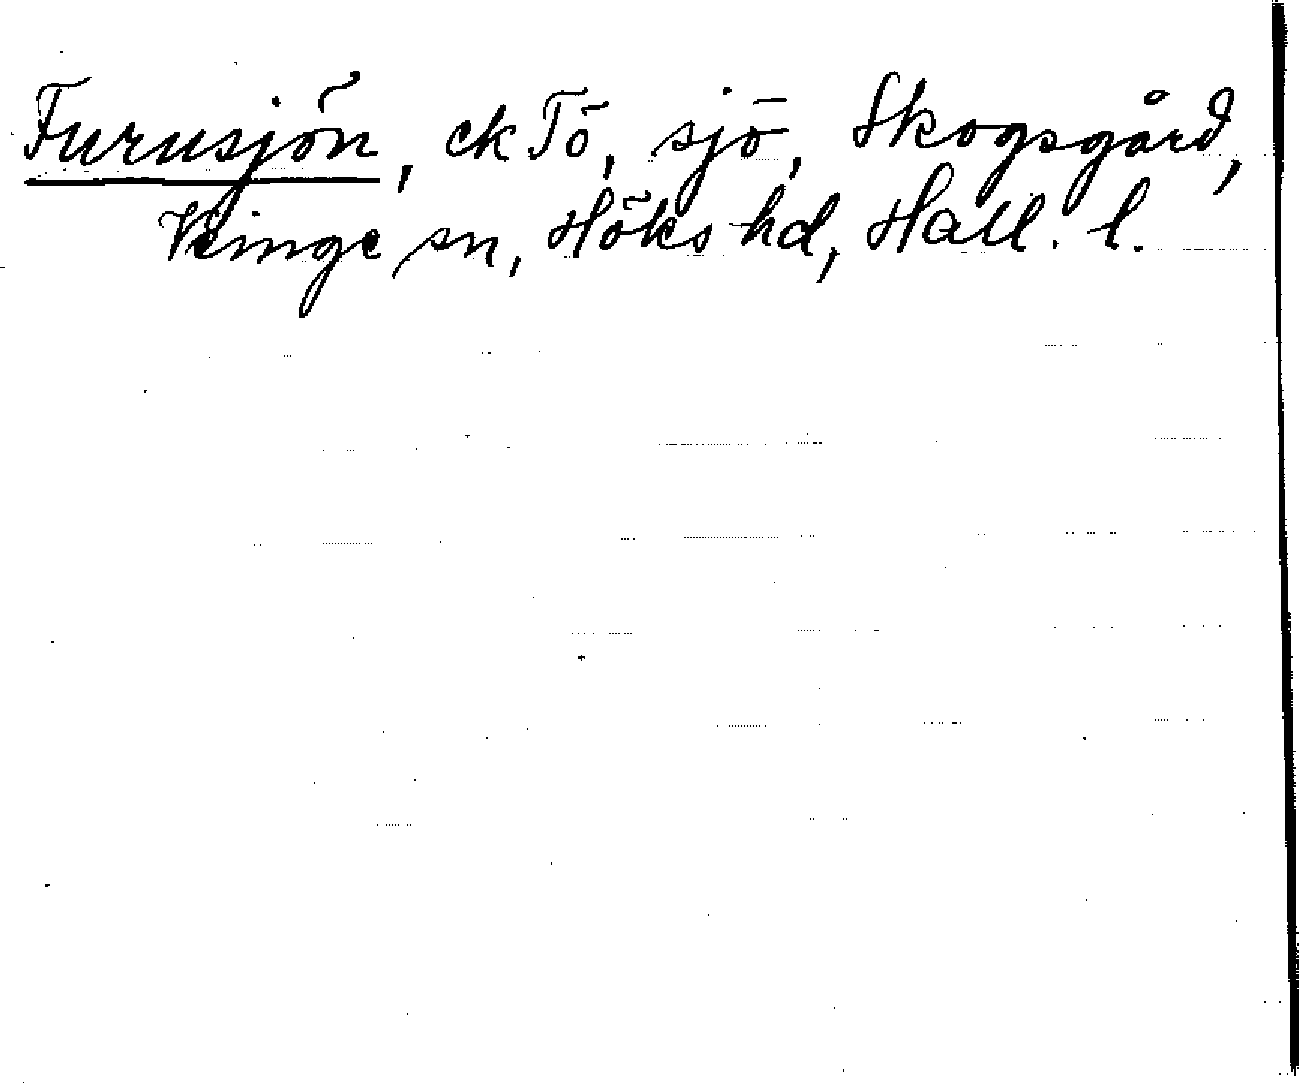 Furusjön, ek Tö, sjö, Skogsgård,
Veinge sn, Höks hd, Hall. l.